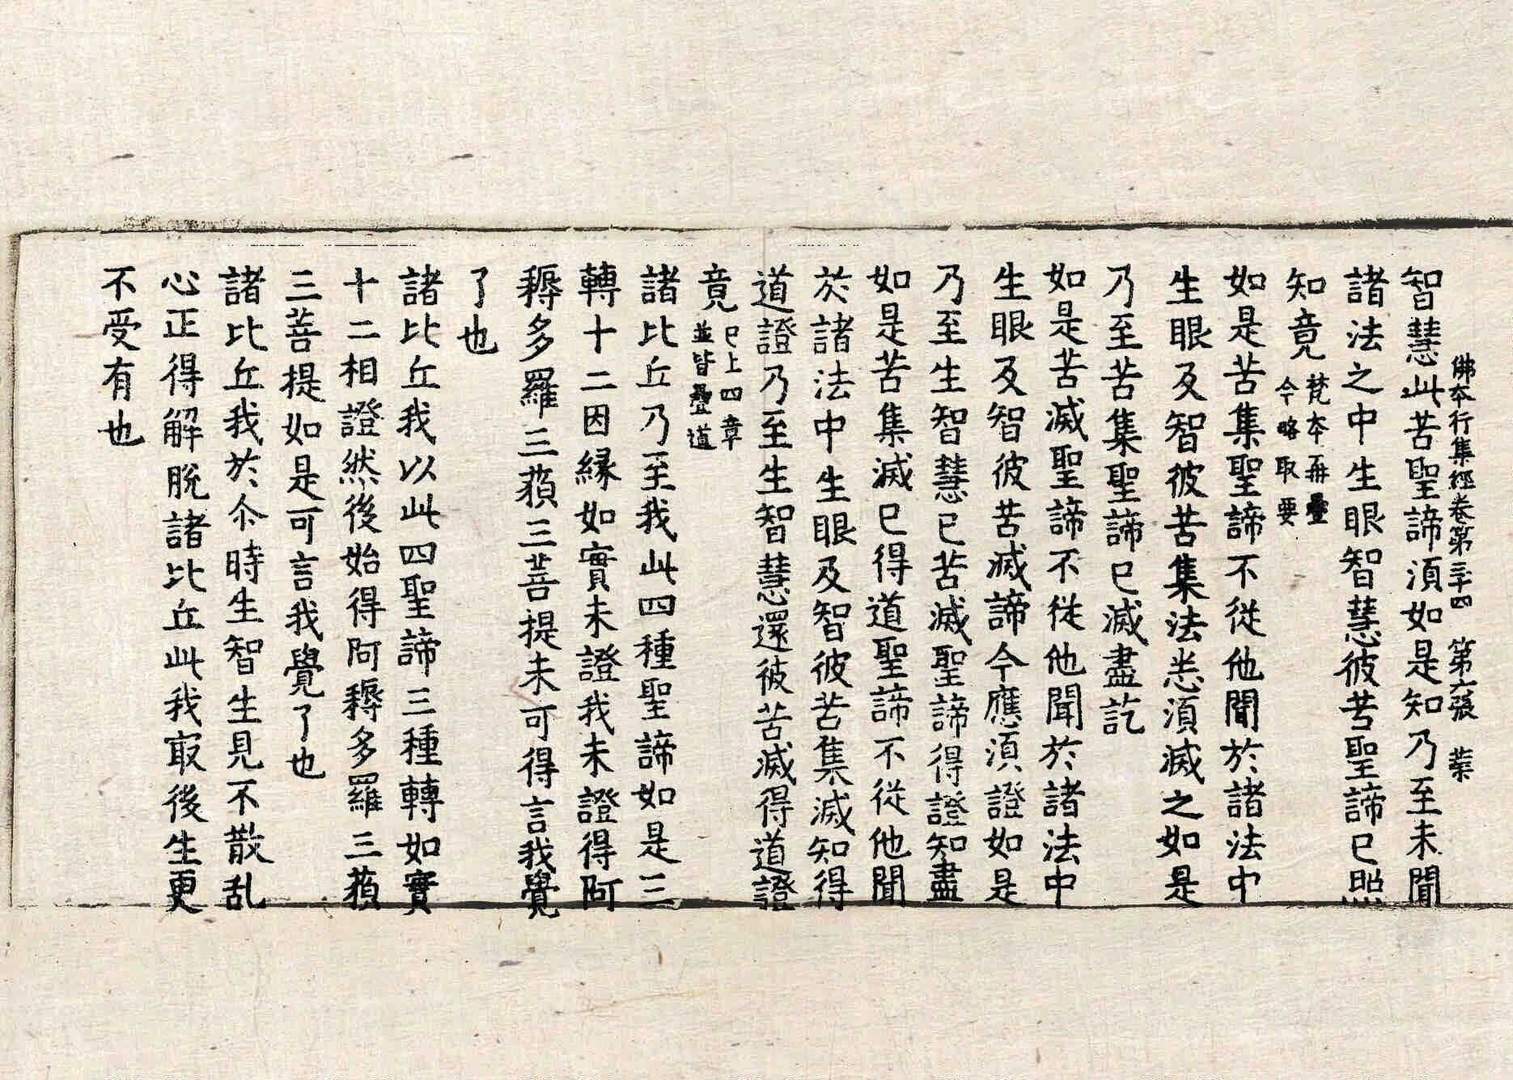 佛本行集經卷第三十四 第六張 業
智慧此苦聖諦湏如是知乃至未聞
諸法之中生眼智慧彼苦聖諦已照
知竟梵本再疊今略取要
如是苦集聖諦不從他聞於諸法中
生眼及智彼苦集法悉湏滅之如是
乃至苦集聖諦已滅盡訖
如是苦滅聖諦不從他聞於諸法中
生眼及智彼苦滅諦今應湏證如是
乃至生智慧已苦滅聖諦得證知盡
如是苦集滅已得道聖諦不從他聞
於諸法中生眼及智彼苦集滅知得
道證乃至生智慧還彼苦滅得道證
竟已上四章並皆疊道
諸比丘乃至我此四種聖諦如是三
轉十二因縁如實未證我未證得阿
耨多羅三藐三菩提未可得言我覺
了也
諸比丘我以此四聖諦三種轉如實
十二相證然後始得阿耨多羅三藐
三菩提如是可言我覺了也
諸比丘我於尒時生智生見不散乱
心正得解脫諸比丘此我㝡後生更
不受有也